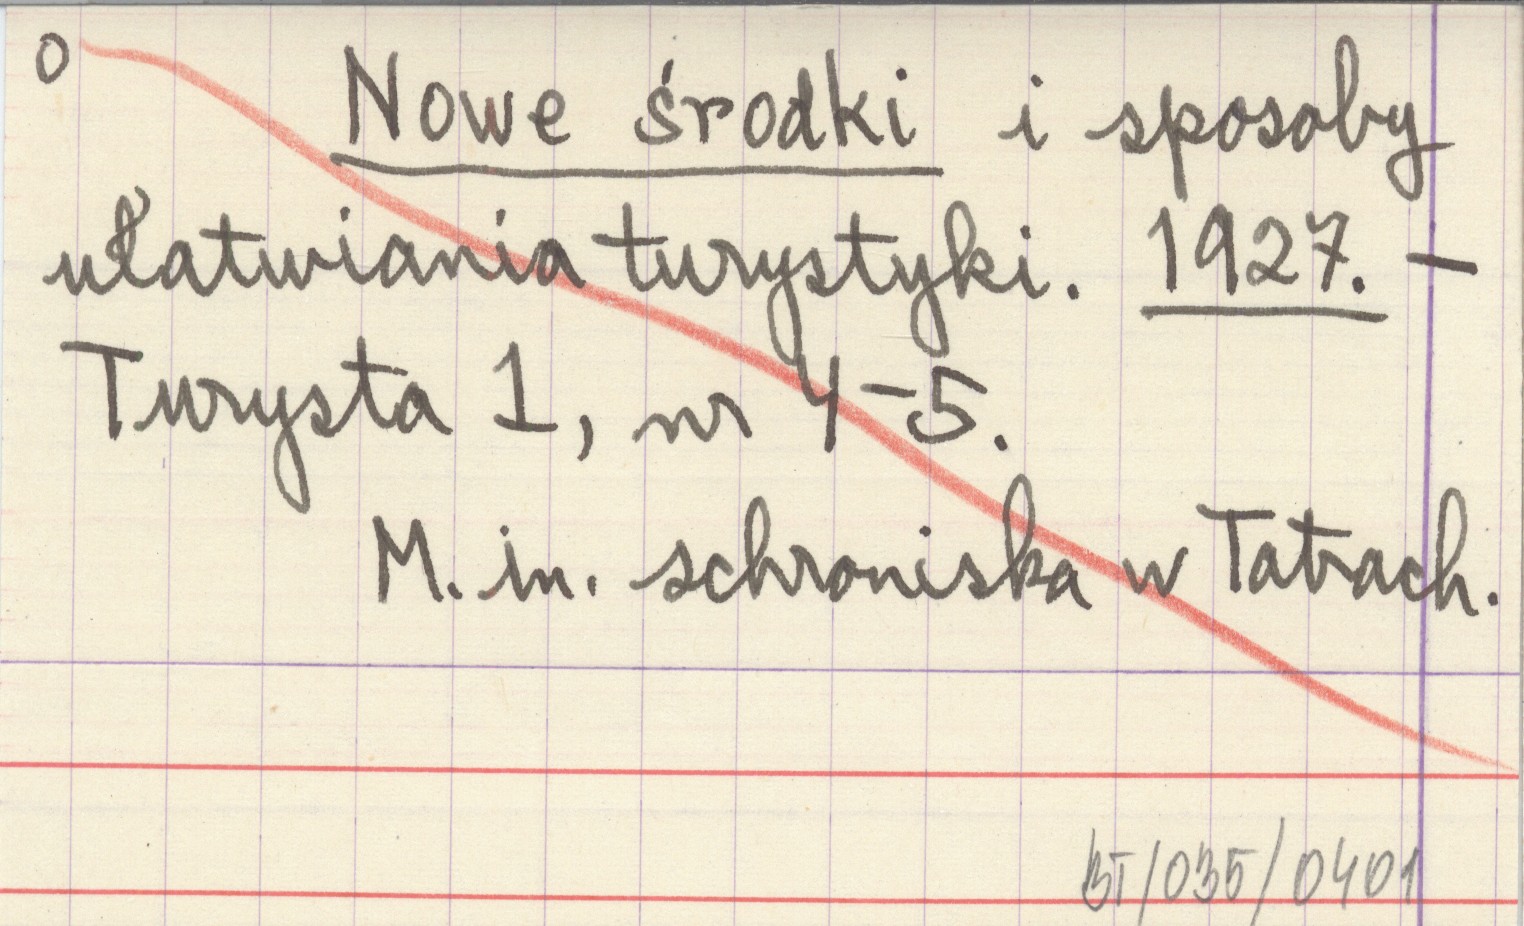 o Nowe środki i sposoby
ułatwiania turystyki. 1927. –
Turysta 1, nr 4–5.
M. in. schroniska w Tatrach.
BT/035/0401